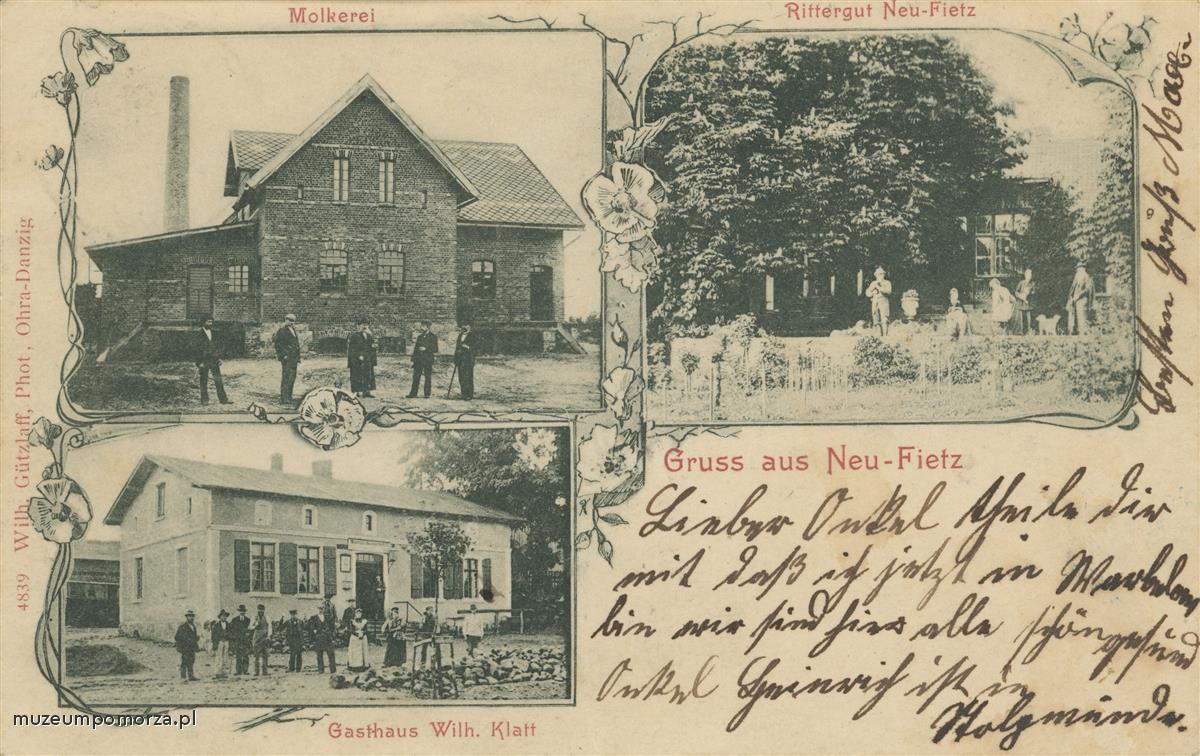 Molkerei
Rittergut Neu-Fietz
4839 Wilh. Gützlaff, Phot., Ohra-Danzig
Gruss aus Neu-Fietz
Lieber Onkel theile dir
mit daß ich jetzt in
bin wir sind hier alle schön gesund
Onkel Heinrich ist in
Stolpmünde.
Gruß
Gasthaus Wilh. Klatt
muzeumpomorza.pl